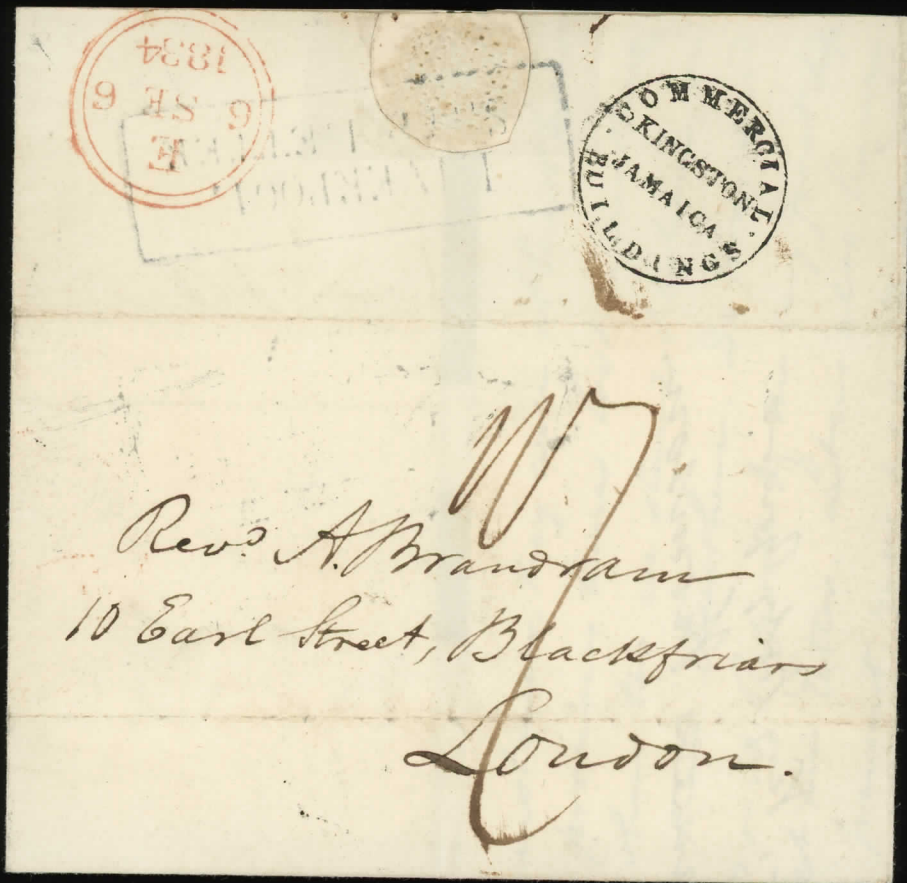 E
6 SE 6
1834
SHIP LETTER
LIVERPOOL
COMMERCIAL
KINGSTON
JAMAICA
BUILDINGS
Revd. A. Brandram
10 Earl Street, Blackfriars
London.